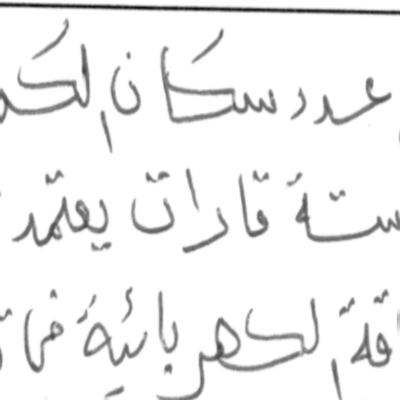 عدد سكان الك
ستة قارات يعتمد
اقة الكهربائية في